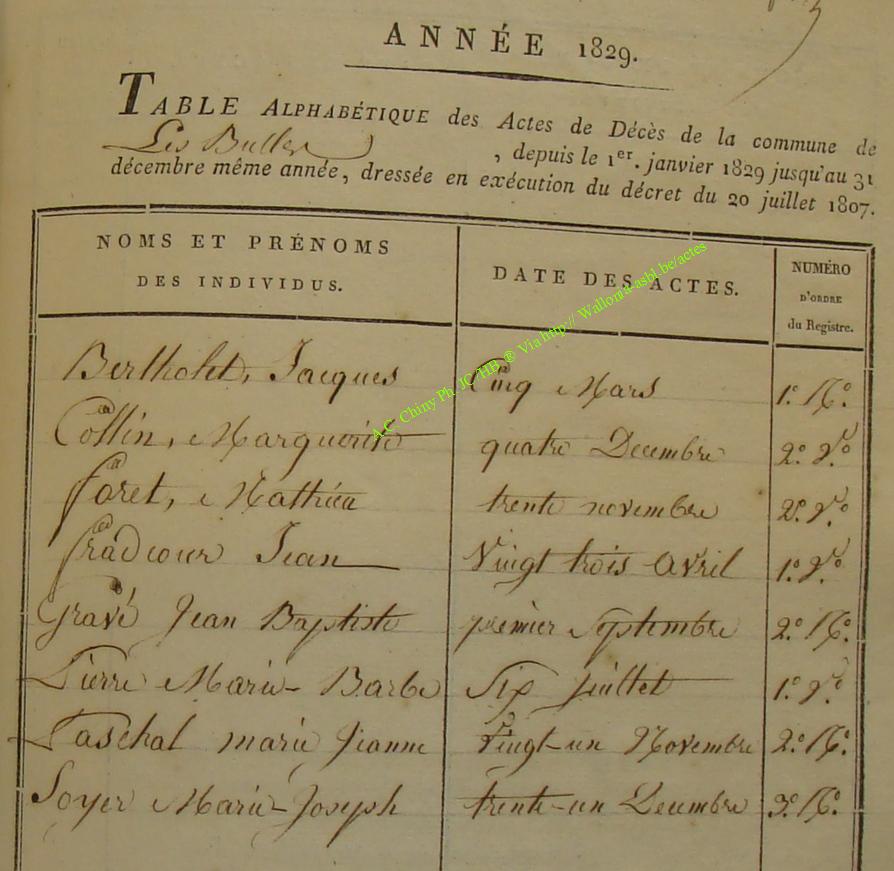 ANNÉE 1829.
TABLE ALPHABÉTIQUE des Actes de Décès de la commune de
Les Bulles, depuis le 1er. janvier 1829 jusqu'au 31
décembre même année, dressée en exécution du décret du 20 juillet 1807.
NOMS ET PRÉNOMS DES INDIVIDUS. DATE DES ACTES. NUMÉRO D'ORDRE du Registre.
Bertholet, Jacques Cinq Mars 1º Rº
Collin, Marguerite quatre Decembre 2º Vº
foret, Mathieu trente novembre 2º Vº
fradcour Jean Vingt trois Avril 1º Vº
Gravé Jean Baptiste premier Septembre 2º Rº
Pierre Marie-Barbe Six juillet 1º Vº
Paschal marie Jeanne Vingt-un Novembre 2º Rº
Soyer Marie-Joseph trente-un Decembre 3º Rº
A.C. Chiny Ph. JC/HB, ® Via http:// Wallonia-asbl.be/actes